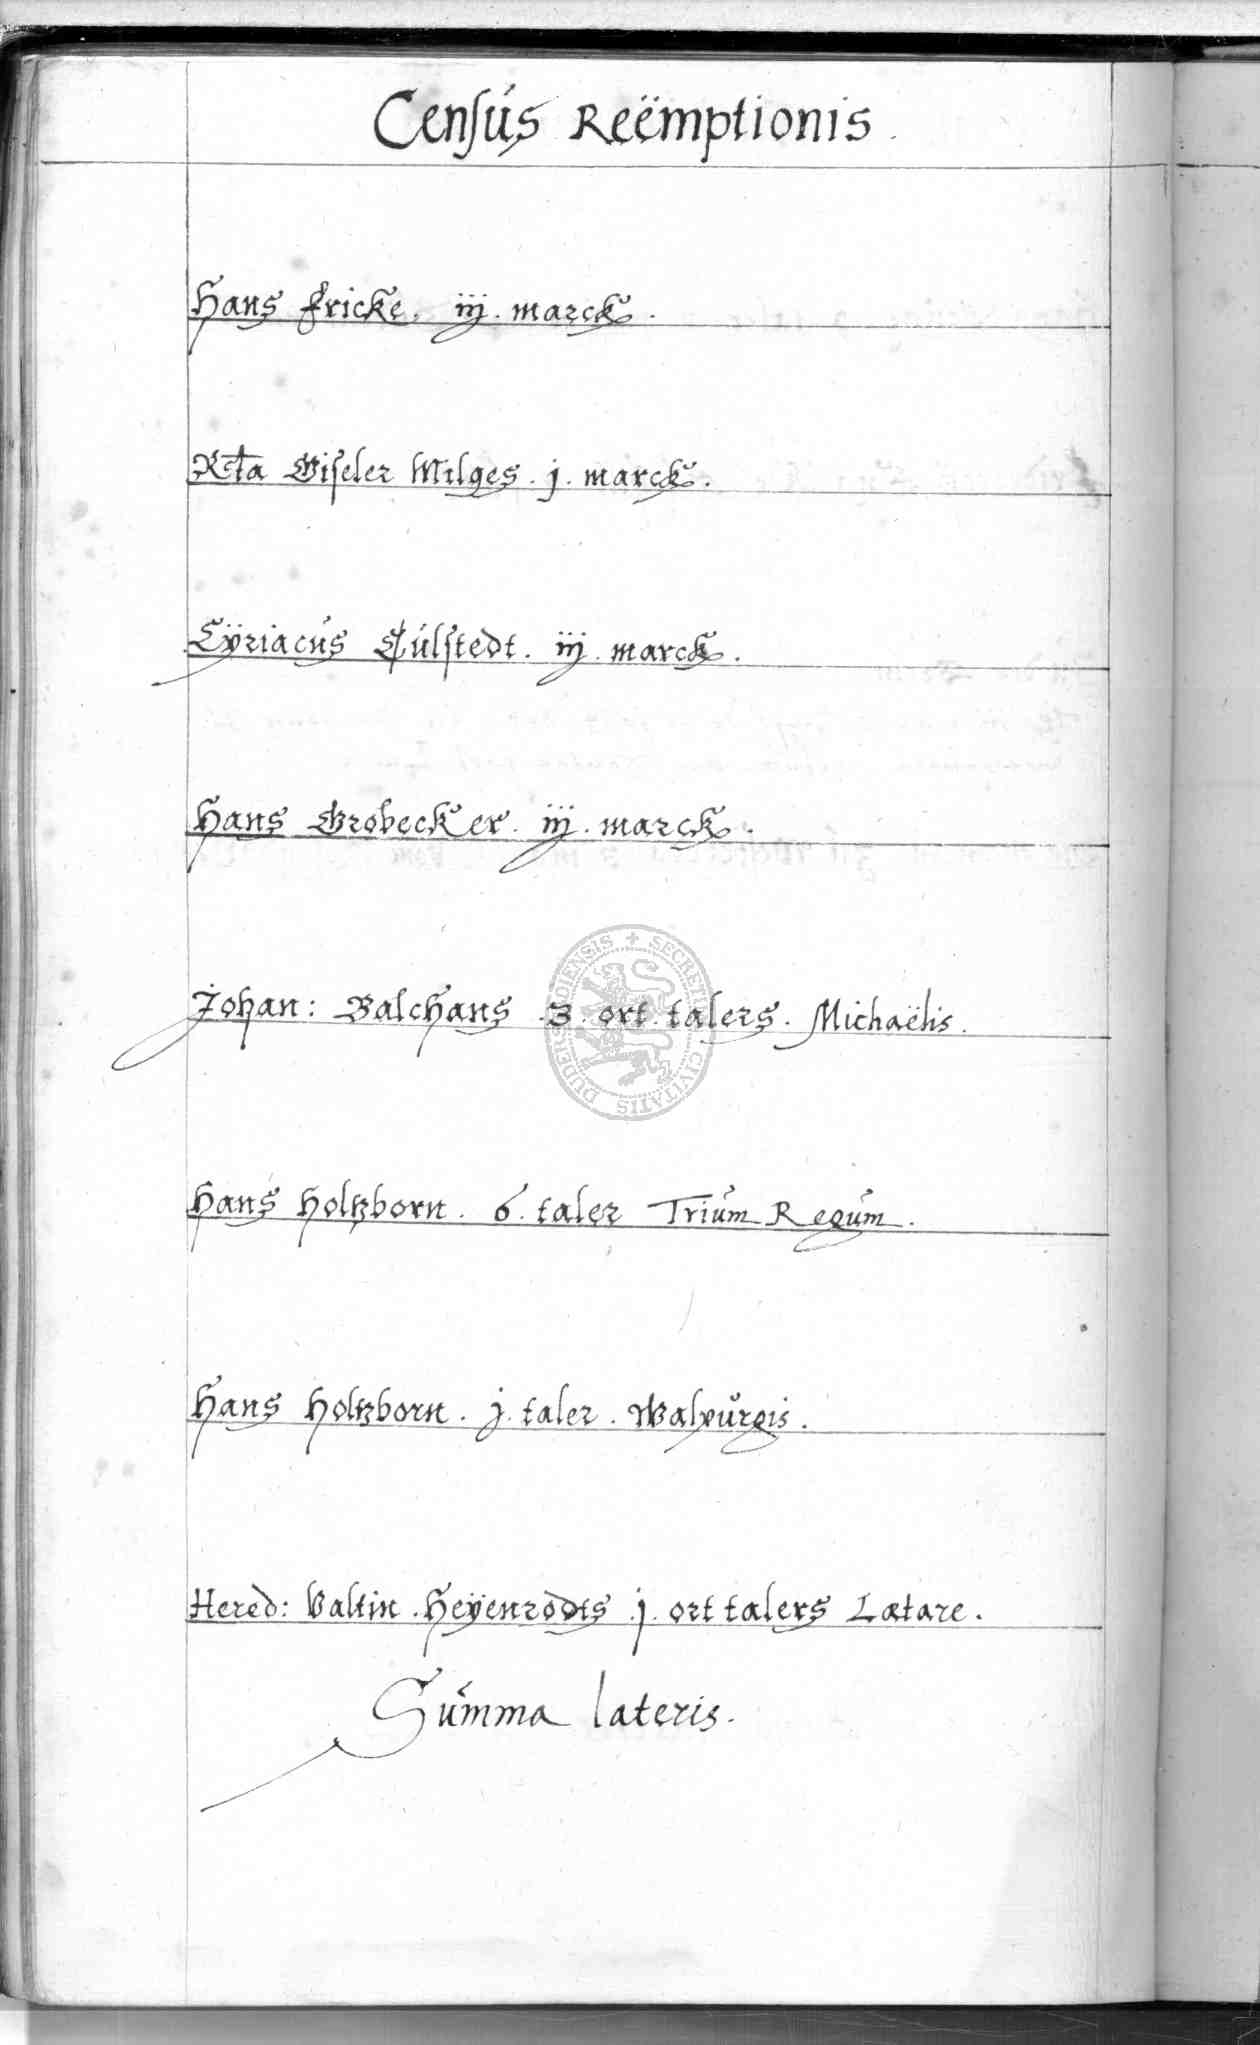 Censús Reëmptionis.
Hans Fricke. iij. marck.
Rcta Giseler Milges. j. marck.
Cÿriacús Cúlstedt. iij. marck.
Hans Grobecker. iij. marck.
Johan: Balchans .3. ort talers. Michaëlis.
Hans Holtzborn. 6. taler Triúm Regúm.
Hans Holtzborn. j. taler. Walpurgis.
Hered: Valtin. Heÿenrodts .j. ort talers Lætare.
Súmma lateris.
SECRETU CIVITATIS DUDERSTODIENSIS